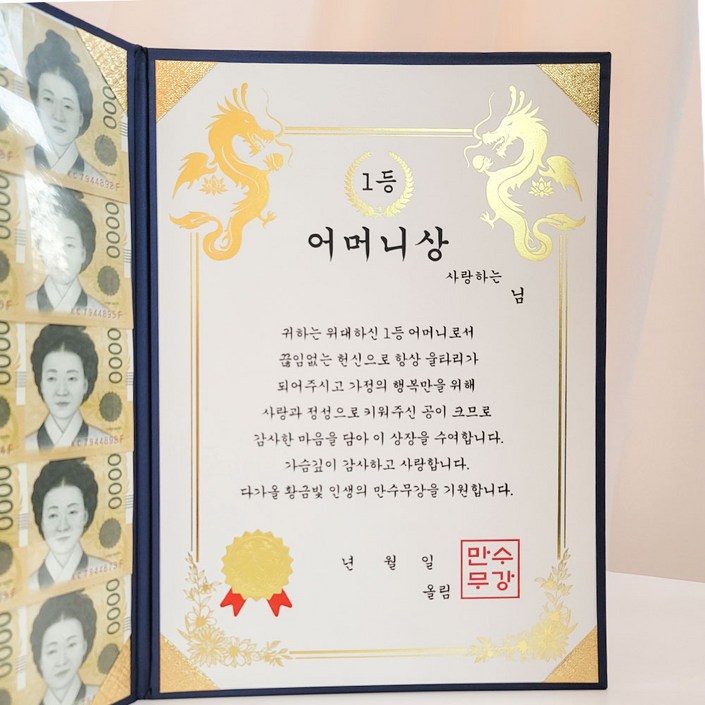 0000
KC7944898F
0000
KC7944895F
0000
0000
0000
1등
어머니상
사랑하는
님
귀하는 위대하신 1등 어머니로서
끊임없는 헌신으로 항상 울타리가
되어주시고 가정의 행복만을 위해
사랑과 정성으로 키워주신 공이 크므로
감사한 마음을 담아 이 상장을 수여합니다.
가슴깊이 감사하고 사랑합니다.
다가올 황금빛 인생의 만수무강을 기원합니다.
년 월 일
올림
만수
무강